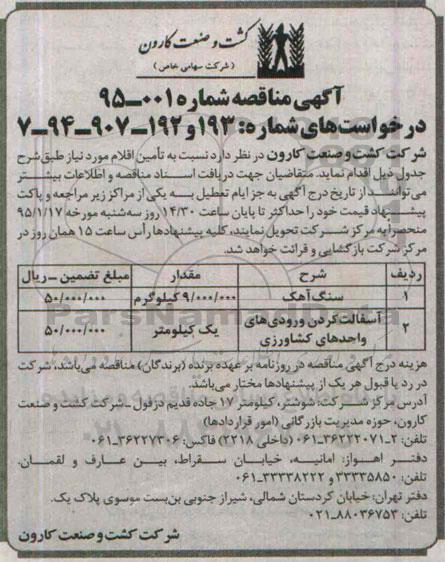 کشت و صنعت کارون
(شرکت سهامی خاص)
آگهی مناقصه شماره ۰۰۱-۹۵
درخواست‌های شماره: ۱۹۳ و ۱۹۲-۹۰۷-۹۴-۷
شرکت کشت و صنعت کارون در نظر دارد نسبت به تأمین اقلام مورد نیاز طبق شرح
جدول ذیل اقدام نماید. متقاضیان جهت دریافت اسناد مناقصه و اطلاعات بیشتر
می‌توانند از تاریخ درج آگهی به جز ایام تعطیل به یکی از مراکز زیر مراجعه و پاکت
پیشنهاد قیمت خود را حداکثر تا پایان ساعت ۱۴/۳۰ روز سه‌شنبه مورخه ۹۵/۱/۱۷
منحصراً به مرکز شرکت تحویل نمایند، کلیه پیشنهادها رأس ساعت ۱۵ همان روز در
مرکز شرکت بازگشایی و قرائت خواهد شد.
ردیف شرح مقدار مبلغ تضمین - ریال
۱ سنگ آهک ۹/۰۰۰/۰۰۰ کیلوگرم ۵۰/۰۰۰/۰۰۰
۲ آسفالت کردن ورودی‌های واحدهای کشاورزی یک کیلومتر ۵۰/۰۰۰/۰۰۰
هزینه درج آگهی مناقصه در روزنامه بر عهده برنده (برندگان) مناقصه می‌باشد، شرکت
در رد یا قبول هر یک از پیشنهادها مختار می‌باشد.
آدرس مرکز شرکت: شوشتر، کیلومتر ۱۷ جاده قدیم دزفول - شرکت کشت و صنعت
کارون، حوزه مدیریت بازرگانی (امور قراردادها)
تلفن: ۲-۳۶۲۲۲۰۷۱-۰۶۱ (داخلی ۲۲۱۸) فاکس: ۳۶۲۲۷۳۰۶-۰۶۱
دفتر اهواز: امانیه، خیابان سقراط، بین عارف و لقمان.
تلفن: ۳۳۳۳۵۸۵۰ و ۳۳۳۳۸۲۲۲-۰۶۱
دفتر تهران: خیابان کردستان شمالی، شیراز جنوبی بن‌بست موسوی پلاک یک.
تلفن: ۸۸۰۳۶۷۵۳-۰۲۱
شرکت کشت و صنعت کارون